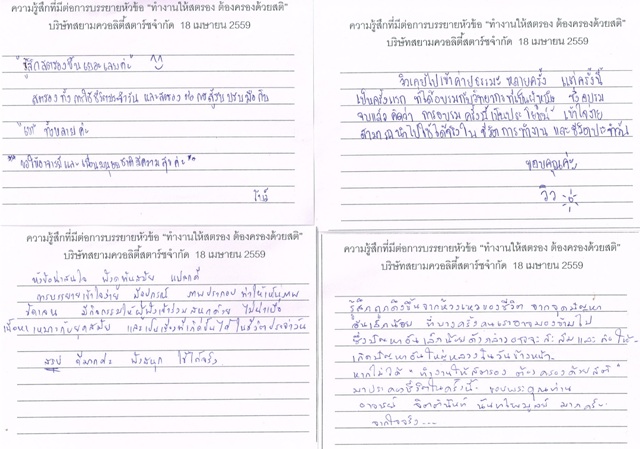 ความรู้สึกที่มีต่อการบรรยายหัวข้อ "ทำงานให้สตรอง ต้องครองด้วยสติ"
บริษัทสยามควอลิตี้สตาร์ชจำกัด 18 เมษายน 2559
รู้สึกสตรองขึ้นเยอะเลยค่ะ
สตรองทั้งการใช้ชีวิตประจำวัน และสตรอง
ทั้งหลายค่ะ
ความรู้สึกที่มีต่อการบรรยายหัวข้อ "ทำงานให้สตรอง ต้องครองด้วยสติ"
บริษัทสยามควอลิตี้สตาร์ชจำกัด 18 เมษายน 2559
วิวเคยไปเข้าค่ายธรรมะ หลายครั้ง แต่ครั้งนี้
เป็นครั้งแรก ที่ได้อบรมกับวิทยากรที่เป็นผู้หญิง ซึ่งอบรม
จบแล้ว คิดว่า การอบรม ครั้งนี้เป็นประโยชน์ เข้าใจง่าย
สามารถนำไปใช้ได้จริงใน ชีวิตการทำงาน และชีวิตประจำวัน
ขอบคุณค่ะ
วิว
ความรู้สึกที่มีต่อการบรรยายหัวข้อ "ทำงานให้สตรอง ต้องครองด้วยสติ"
บริษัทสยามควอลิตี้สตาร์ชจำกัด 18 เมษายน 2559
หัวข้อน่าสนใจ ฟังดูทันสมัย แปลกดี
การบรรยายเข้าใจง่าย มีอุปกรณ์ ภาพประกอบ ทำให้เห็นภาพ
ชัดเจน มีกิจกรรมให้ผู้ฟังเข้าร่วมสนุกด้วย ไม่น่าเบื่อ
เนื้อหาเหมาะกับยุคสมัย และเป็นเรื่องที่เกิดขึ้นได้ในชีวิตประจำวัน
สรุป ดีมากค่ะ ฟังสนุก ใช้ได้จริง
ความรู้สึกที่มีต่อการบรรยายหัวข้อ "ทำงานให้สตรอง ต้องครองด้วยสติ"
บริษัทสยามควอลิตี้สตาร์ชจำกัด 18 เมษายน 2559
รู้สึกถูกดึงขึ้นจากห้วงเหวของชีวิต จากจุดปัญหา
อันเล็กน้อย ที่บางครั้งคนเราอาจมองข้ามไป
ซึ่งปัญหาอันเล็กน้อยดังกล่าวอาจจะสะสมและก่อให้
เกิดปัญหาอันใหญ่หลวงขึ้นในวันข้างหน้า
หากไม่ได้ "ทำงานให้สตรอง ต้องครองด้วยสติ"
มาประคองชีวิตในครั้งนี้ ขอบพระคุณท่าน
อาจารย์ มากครับ
จากใจจริง...